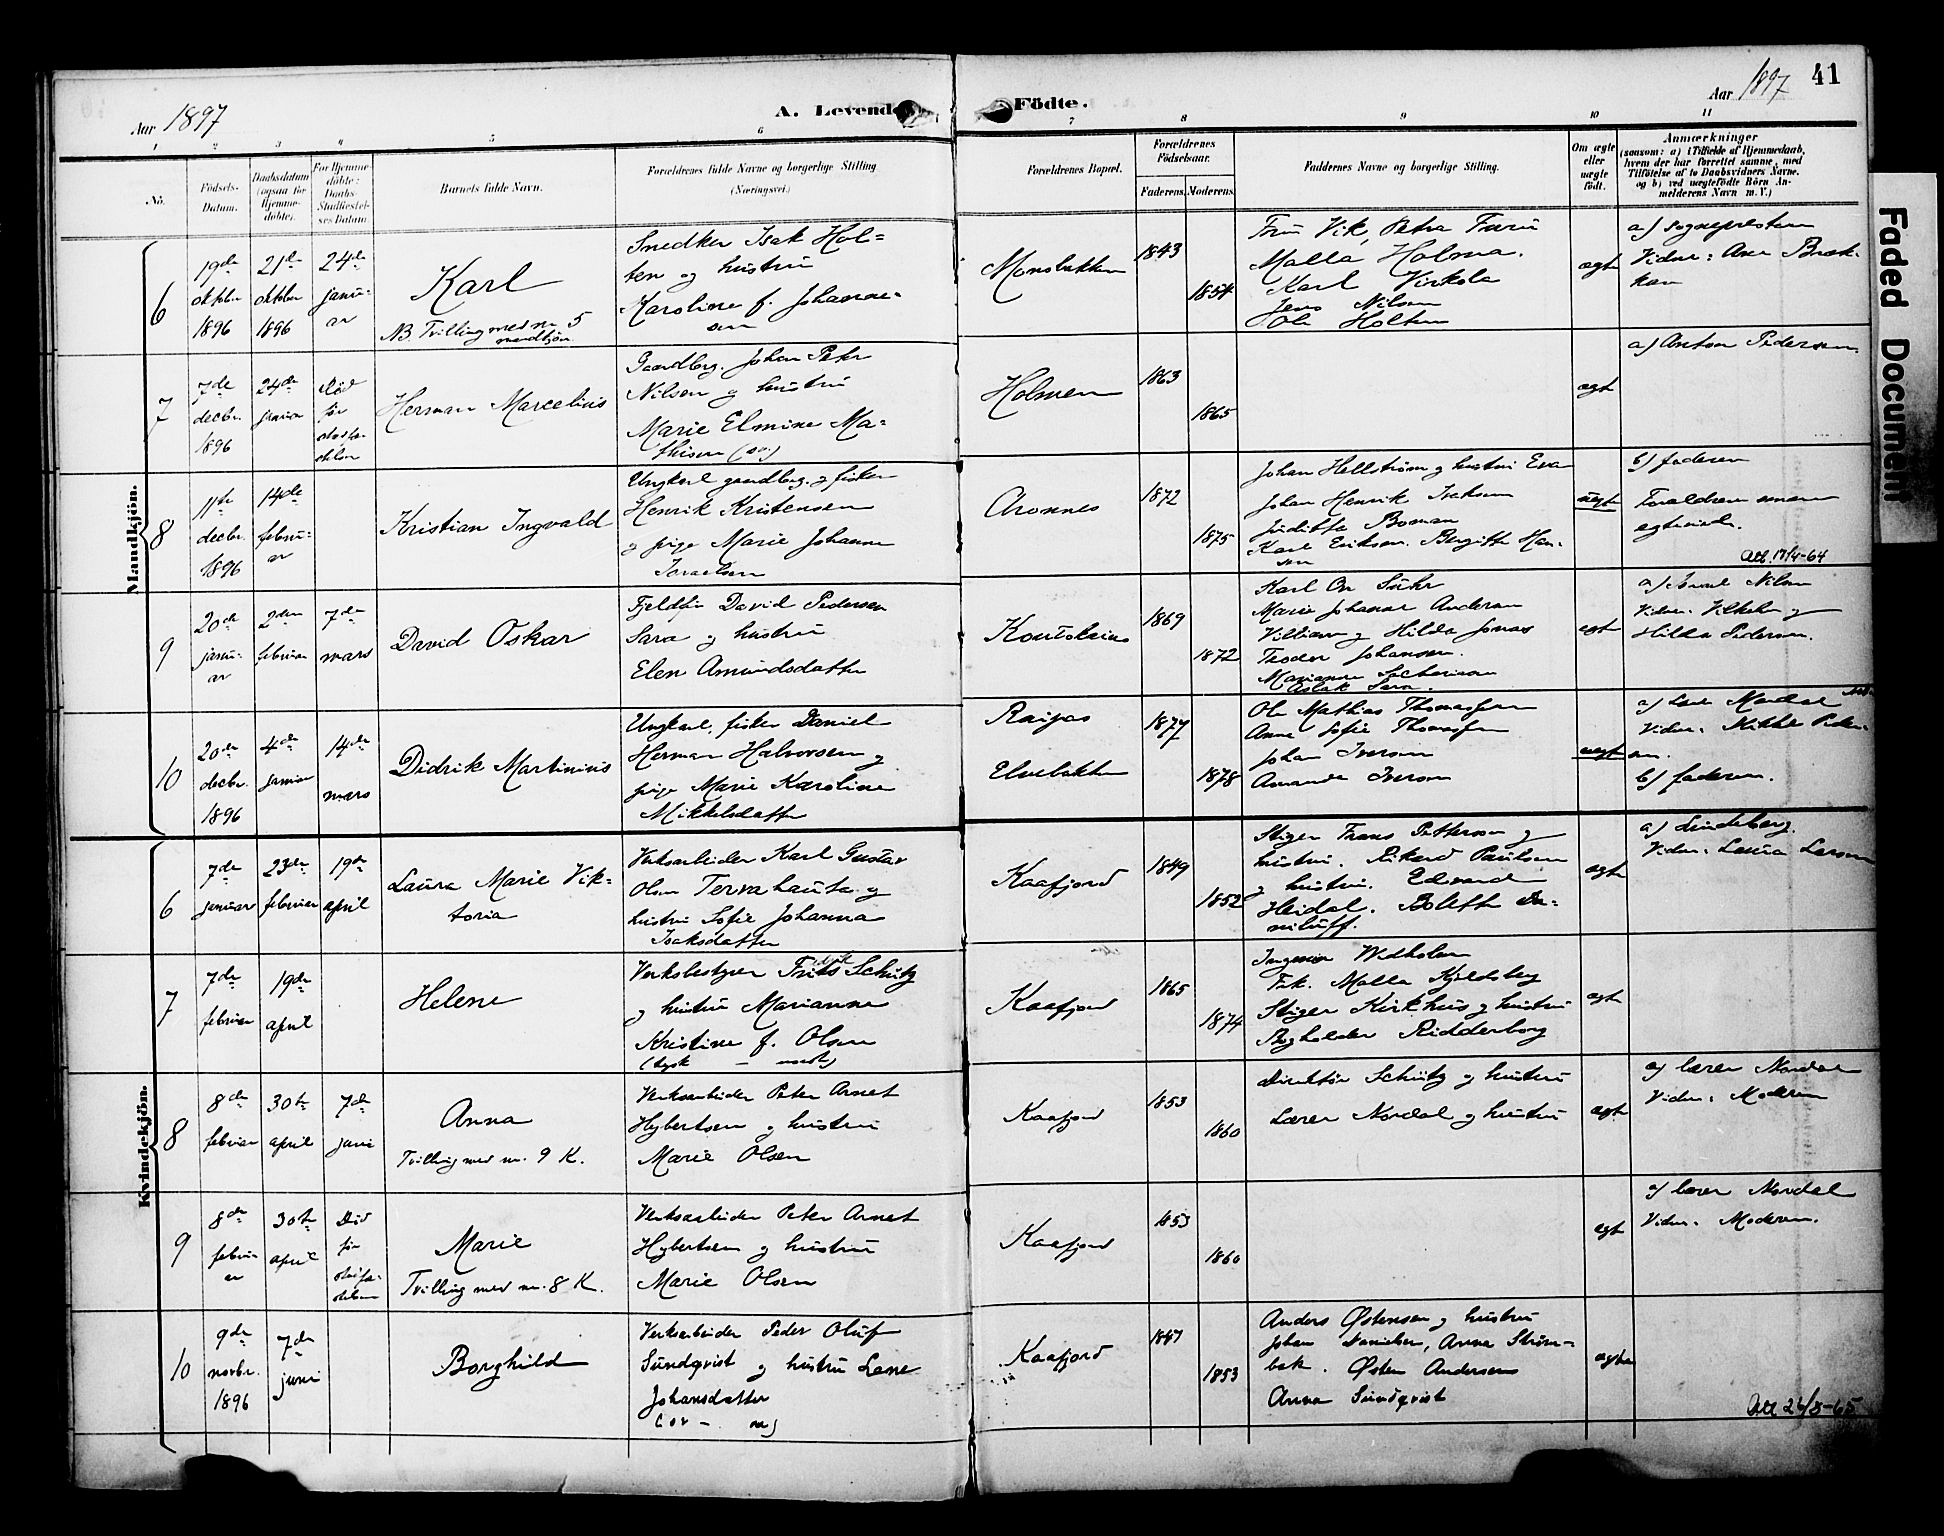 Aar 1897
A. Levende Födte.
Aar 1897
41
1 2 3 4 5 6 7 8 9 10 11
No.
Födsels-Datum.
Daabsdatum (ogsaa for Hjemme-döbte).
For Hjemme-döbte: Daabs-Stadfæstel-ses Datum
Barnets fulde Navn.
Forældrenes fulde Navne og borgerlige Stilling
(Næringsvei.)
Forældrenes Bopæl.
Forældrenes Födselsaar.
Faderens. Moderens.
Faddernes Navne og borgerlige Stilling.
Om ægte eller uægte födt.
Anmærkninger
(saasom: a) i Tilfælde af Hjemmedaab,
hvem der har forrettet samme, med
Tilföielse af to Daabsvidners Navne.
og b) ved uægtefödte Börn An-
melderens Navn m. V.)
Mandkjön.
6
19de oktober 1896
21de oktober 1896
24de janu-ar
Karl
NB. Tvilling med nr. 5 mandkjön.
Snedker Isak Hol-
ten og hustru
Karoline f. Johanne-
sen
Monsbakken
1843
1854
Fru Vik, Petra Furu
Malla Holma.
Karl Virkola
Jens Nilsen
Ole Holten
ægte
a) sognepresten
Vidner: Ane Bræk-
kan
7
7de decbr. 1896
24de januar
död før stadfæ-stelsen
Herman Marcelius
Gaardbrg. Johan Peter
Nilsen og hustru
Marie Elmine Ma-
thisen
Holmen
1863
1865
ægte
a) Anton Pedersen.
8
11te decbr. 1896
14de febru-ar
Kristian Ingvald
Ungkarl gaardbrg. og fisker
Henrik Kristensen
og pige Marie Johanne
Israelsen
Aronnes
1872
1875
Johan Hellström og hustru Eva
Johan Henrik Isaksen
Juditha Boman
Karl Eriksen. Bergitte Han-
sen
uægte
b) faderen
Forældrene senere
egteviede.
Att. 17/4-64
9
20de janu-ar
2den februar
7de mars
David Oskar
Fjeldfin David Pedersen
Sara og hustru
Elen Amundsdatter
Koutokeino
1869
1872
Marie Johanne Andersen
Villiam og Hilda Jonas
Teodor Johansen.
Aslak Sara.
ægte
Vidner: Vilhelm og
Hilda Pedersen.
10
20de decbr. 1896
4de januar
14de mars
Didrik Martinius
Ungkarl, fisker Daniel
Herman Halvorsen og
pige Marie Karoline
Mikkelsdatter
Raipas
Elvebakken
1877
1878
Ole Mathias Thomassen
Anne Sofie Thomassen
Johan Iversen
Amanda Iversen
uægte
Vidner: Mikkel Peder-
sen.
b) faderen.
Kvindekjön.
6
7de januar
23de februar
19de april
Laura Marie Vik-
toria
Verksarbeider Karl Gustav
Olsen Tervahauta og
hustru Sofie Johanna
Isaksdatter
Kaafjord
1849
1852
Stiger Frans Pettersen og
hustru. Rikard Paulsen
og hustru. Edvard
Heidal. Bolette Da-
niluff.
ægte
a) Lindeberg.
Vidner: Laura Larsen
7
7de februar
19de april
Helene
Verksbestyrer Frits Schütz
og hustru Marianne
Kristine f. Olsen
(tysk — norsk)
Kaafjord
1865
1874
Ingeniør Widholm
Frk. Malla Kjeldsberg
Stiger Kirkhus og hustru
Bogholder Ridderborg
ægte
8
8de februar
30te april
7de juni
Anna
Tvilling med nr. 9 K.
Verksarbeider Peter Arnet
Hybertsen og hustru
Marie Olsen
Kaafjord
1853
1860
Direktør Schütz og hustru
Lærer Nordal og hustru
ægte
a) lærer Nordal
Vidner: Moderen
9
8de febru-ar
30te april
Död før stadfæ-stelsen
Marie
Tvilling med nr. 8 K.
Verksarbeider Peter Arnet
Hybertsen og hustru
Marie Olsen
Kaafjord
1853
1860
ægte
a) lærer Nordal
Vidner: Moderen.
10
9de novbr. 1896
7de juni
Borghild
Verksarbeider Peder Oluf
Sundqvist og hustru Lene
Johansdatter
Kaafjord
1847
1853
Anders Østensen og hustru
Johan Danielsen, Anna Strøm-
bak. Østen Andersens
Anna Sundqvist
ægte
Att 26/8-65
Faded Document